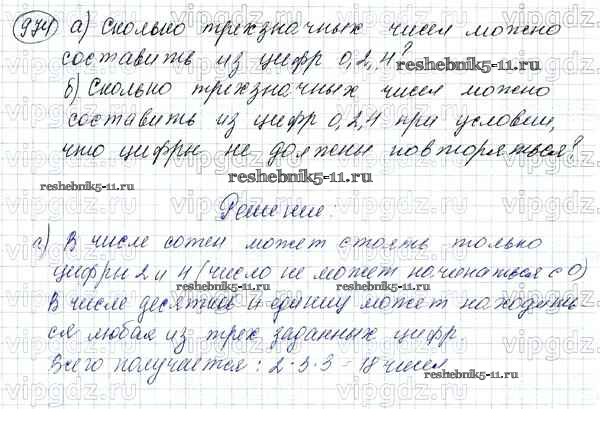 974 а) Сколько трехзначных чисел можно
составить из цифр 0,2,4?
reshebnik5-11.ru
б) Сколько трехзначных чисел можно
составить из цифр 0,2,4 при условии,
что цифры не должны повторяться?
reshebnik5-11.ru
reshebnik5-11.ru
Решение.
а) В числе сотен может стоять только
цифры 2 и 4 (число не может начинаться с 0)
В числе десятков и единиц может находить
ся любая из трех заданных цифр.
Всего получается: 2·3·3=18 чисел
reshebnik5-11.ru
vipgdz.ru